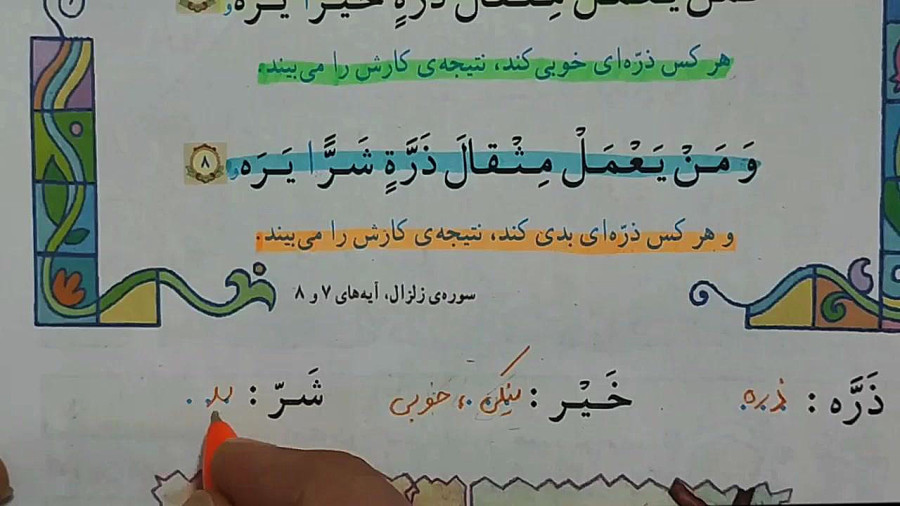 مَنْ یَعْمَلْ مِثْقالَ ذَرَّةٍ خَیْرًا یَرَه
هر کس ذرّه‌ای خوبی کند، نتیجه‌ی کارش را می‌بیند.
وَ مَنْ یَعْمَلْ مِثْقالَ ذَرَّةٍ شَرًّا یَرَه ۸
و هر کس ذرّه‌ای بدی کند، نتیجه‌ی کارش را می‌بیند.
سوره‌ی زلزال، آیه‌های ۷ و ۸
ذَرَّه : ذره خَیْر : نیکی ، خوبی شَرّ :